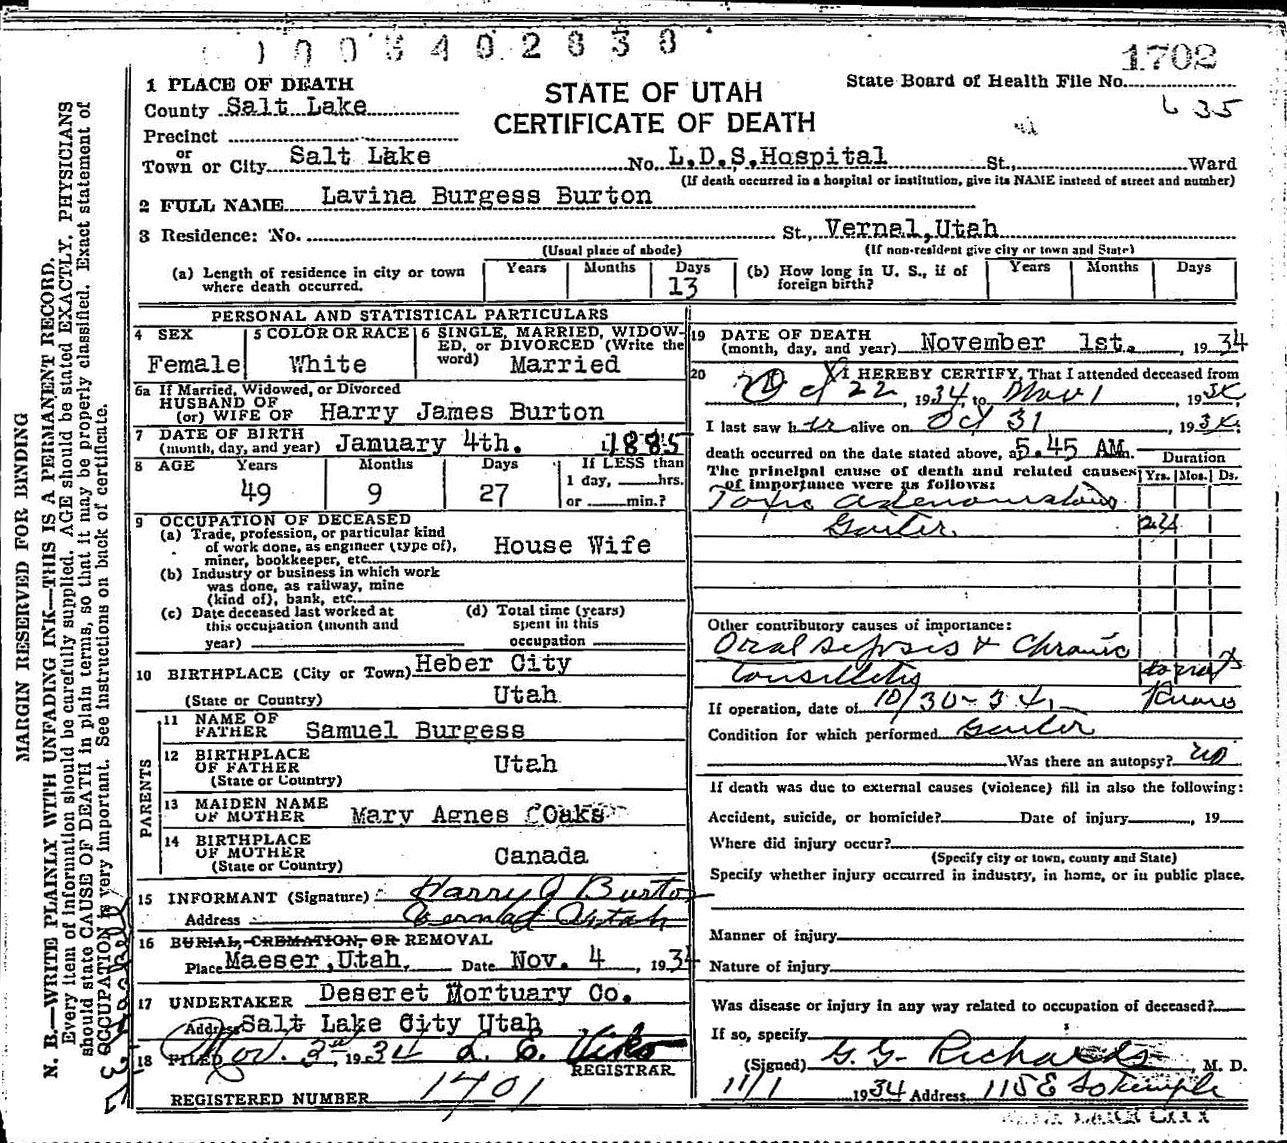 1003402838
1702
State Board of Health File No.
635
STATE OF UTAH
CERTIFICATE OF DEATH
1 PLACE OF DEATH
County Salt Lake
Precinct
or
Town or City Salt Lake No. L.D.S.Hospital St., Ward
(If death occurred in a hospital or institution, give its NAME instead of street and number)
2 FULL NAME Lavina Burgess Burton
3 Residence: No. St., Vernal,Utah
(Usual place of abode) (If non-resident give city or town and State)
(a) Length of residence in city or town where death occurred. Years Months Days 13
(b) How long in U. S., if of foreign birth? Years Months Days
PERSONAL AND STATISTICAL PARTICULARS
4 SEX Female
5 COLOR OR RACE White
6 SINGLE, MARRIED, WIDOWED, or DIVORCED (Write the word) Married
6a If Married, Widowed, or Divorced
HUSBAND OF
(or) WIFE OF Harry James Burton
7 DATE OF BIRTH
(month, day, and year) January 4th. 1885
8 AGE Years Months Days If LESS than
49 9 27 1 day, hrs.
or min.?
9 OCCUPATION OF DECEASED
(a) Trade, profession, or particular kind
of work done, as engineer (type of),
miner, bookkeeper, etc. House Wife
(b) Industry or business in which work
was done, as railway, mine
(kind of), bank, etc.
(c) Date deceased last worked at
this occupation (month and
year)
(d) Total time (years)
spent in this
occupation
10 BIRTHPLACE (City or Town) Heber City
(State or Country) Utah
PARENTS
11 NAME OF
FATHER Samuel Burgess
12 BIRTHPLACE
OF FATHER Utah
(State or Country)
13 MAIDEN NAME
OF MOTHER Mary Agnes Oaks
14 BIRTHPLACE
OF MOTHER
(State or Country) Canada
15 INFORMANT (Signature) Harry J Burton
Address Vernal Utah
16 BURIAL, CREMATION, OR REMOVAL
Place Maeser,Utah. Date Nov. 4, 1934
17 UNDERTAKER Deseret Mortuary Co.
Address Salt Lake City Utah
18 FILED Nov. 3rd 1934 L. E. Viko
REGISTRAR
REGISTERED NUMBER 1701
19 DATE OF DEATH
(month, day, and year) November 1st. , 1934
20 I HEREBY CERTIFY, That I attended deceased from
Oct 22, 1934, to Nov 1, 1934
I last saw her alive on Oct 31, 1934.
death occurred on the date stated above, at 5.45 AM.
The principal cause of death and related causes
of importance were as follows:
Duration
Yrs. Mos. Ds.
Toxic adenomatous
Goiter.
Other contributory causes of importance:
Oral sepsis & Chronic
tonsillitis
If operation, date of 10/30-34
Condition for which performed Goiter
Was there an autopsy? no
If death was due to external causes (violence) fill in also the following:
Accident, suicide, or homicide? Date of injury , 19
Where did injury occur?
(Specify city or town, county and State)
Specify whether injury occurred in industry, in home, or in public place.
Manner of injury
Nature of injury
Was disease or injury in any way related to occupation of deceased?
If so, specify
(Signed) G. G. Richards M. D.
11/1 1934 Address 115 E So Temple
SALT LAKE CITY
MARGIN RESERVED FOR BINDING
N. B.—WRITE PLAINLY WITH UNFADING INK—THIS IS A PERMANENT RECORD.
Every item of information should be carefully supplied. AGE should be stated EXACTLY. PHYSICIANS
should state CAUSE OF DEATH in plain terms, so that it may be properly classified. Exact statement of
OCCUPATION is very important. See instructions on back of certificate.